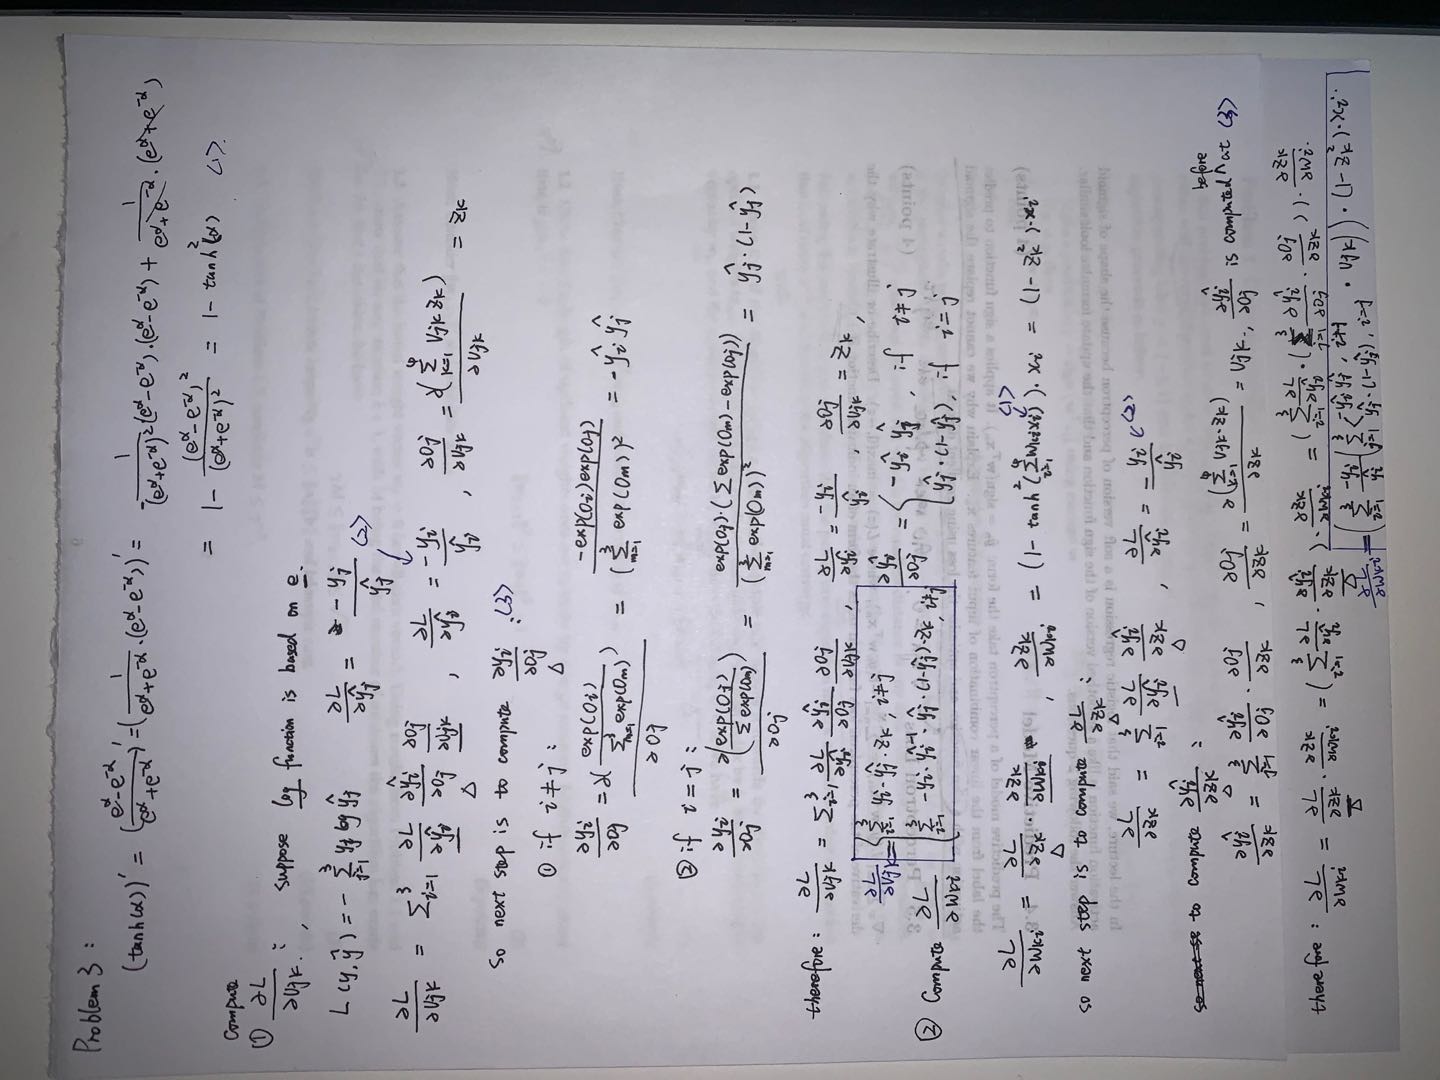 Problem 3 :
(tanh(α))' = (\frac{e^α - e^{-α}}{e^α + e^{-α}})' = (\frac{1}{e^α + e^{-α}} · (e^α - e^{-α}))' = -\frac{1}{(e^α + e^{-α})^2} (e^α - e^{-α}) · (e^α - e^{-α}) + \frac{1}{e^α + e^{-α}} · (e^α + e^{-α})
= 1 - \frac{(e^α - e^{-α})^2}{(e^α + e^{-α})^2} = 1 - tanh^2(α) <1>.
Compute
① \frac{∂L}{∂V_{jk}} : , suppose log function is based on e.
L(y, ŷ) = - \sum_{j=1}^{3} y_j log ŷ_j \frac{∂L}{∂ŷ_j} = \frac{-y_j}{ŷ_j} <2>
\frac{∂L}{∂V_{jk}} = Σ_{i=1}^{3} \frac{∂L}{∂ŷ_i} \frac{∂ŷ_i}{∂O_j} \frac{∂O_j}{∂V_{jk}} , \frac{∂L}{∂ŷ_i} = \frac{-y_i}{ŷ_i} , \frac{∂O_j}{∂V_{jk}} = \frac{∂(\sum_{k=1}^{4} V_{jk} Z_k)}{∂V_{jk}} = Z_k
So next step is to compute \frac{∂y_i}{∂O_j} : <3>
① if i ≠ j :
\frac{∂y_i}{∂O_j} = \frac{∂(\frac{exp(O_i)}{\sum_{m=1}^{3} exp(O_m)})}{∂O_j} = \frac{-exp(O_i) exp(O_j)}{(\sum_{m=1}^{3} exp(O_m))^2} = -ŷ_i ŷ_j
② if i = j :
\frac{∂y_i}{∂O_j} = \frac{∂(\frac{exp(O_j)}{Σ exp(O_m)})}{∂O_j} = \frac{exp(O_j) · (Σ exp(O_m) - exp(O_j))}{(\sum_{m=1}^{3} exp(O_m))^2} = ŷ_j · (1 - ŷ_j)
therefore : \frac{∂L}{∂V_{jk}} = Σ_{i=1}^{3} \frac{∂L}{∂ŷ_i} \frac{∂ŷ_i}{∂O_j} \frac{∂O_j}{∂V_{jk}} , \frac{∂L}{∂ŷ_i} = \frac{-y_i}{ŷ_i} , \frac{∂O_j}{∂V_{jk}} = Z_k ,
\frac{∂L}{∂V_{jk}} = { \sum_{i=1}^{3} y_i · ŷ_j · Z_k , i ≠ j
\sum_{i=1}^{3} -y_i · ŷ_i^{-1} · ŷ_j · (1 - ŷ_j) · Z_k , i ≠ j
\frac{∂ŷ_i}{∂O_j} = { -ŷ_i ŷ_j , if i ≠ j
ŷ_j · (1 - ŷ_j) , if i = j
② Compute \frac{∂L}{∂W_{ki}}
\frac{∂L}{∂W_{ki}} = \frac{∂L}{∂Z_k} · \frac{∂Z_k}{∂W_{ki}} , \frac{∂Z_k}{∂W_{ki}} = (1 - tanh^2(\sum_{i=1}^{4} W_{ki} x_i)) · x_i = (1 - Z_k^2) · x_i <1>
so next step is to compute \frac{∂L}{∂Z_k} :
\frac{∂L}{∂Z_k} = \sum_{i=1}^{3} \frac{∂L}{∂ŷ_i} \frac{∂ŷ_i}{∂Z_k} , \frac{∂L}{∂ŷ_i} = -\frac{y_i}{ŷ_i} <2>
to compute \frac{∂ŷ_i}{∂Z_k} :
\frac{∂ŷ_i}{∂Z_k} = \sum_{j=1}^{3} \frac{∂ŷ_i}{∂O_j} · \frac{∂O_j}{∂Z_k} , \frac{∂O_j}{∂Z_k} = \frac{∂(\sum_{k=1}^{4} V_{jk} · Z_k)}{∂Z_k} = V_{jk} , \frac{∂ŷ_i}{∂O_j} is computed before at <3>
therefore : \frac{∂L}{∂W_{ki}} = \frac{∂L}{∂Z_k} · \frac{∂Z_k}{∂W_{ki}} = (\sum_{i=1}^{3} \frac{∂L}{∂ŷ_i} · \frac{∂ŷ_i}{∂Z_k}) · \frac{∂Z_k}{∂W_{ki}} = (\sum_{i=1}^{3} \frac{∂L}{∂ŷ_i} · (\sum_{j=1}^{3} \frac{∂ŷ_i}{∂O_j} · \frac{∂O_j}{∂Z_k})) · \frac{∂Z_k}{∂W_i}.
\frac{∂L}{∂W_{ki}} = (\sum_{i=1}^{3} \frac{-y_i}{ŷ_i} (\sum_{j=1}^{3} { -ŷ_i ŷ_j , i ≠ j ; ŷ_j · (1 - ŷ_j) , i = j · V_{jk})) · (1 - Z_k^2) · x_i .